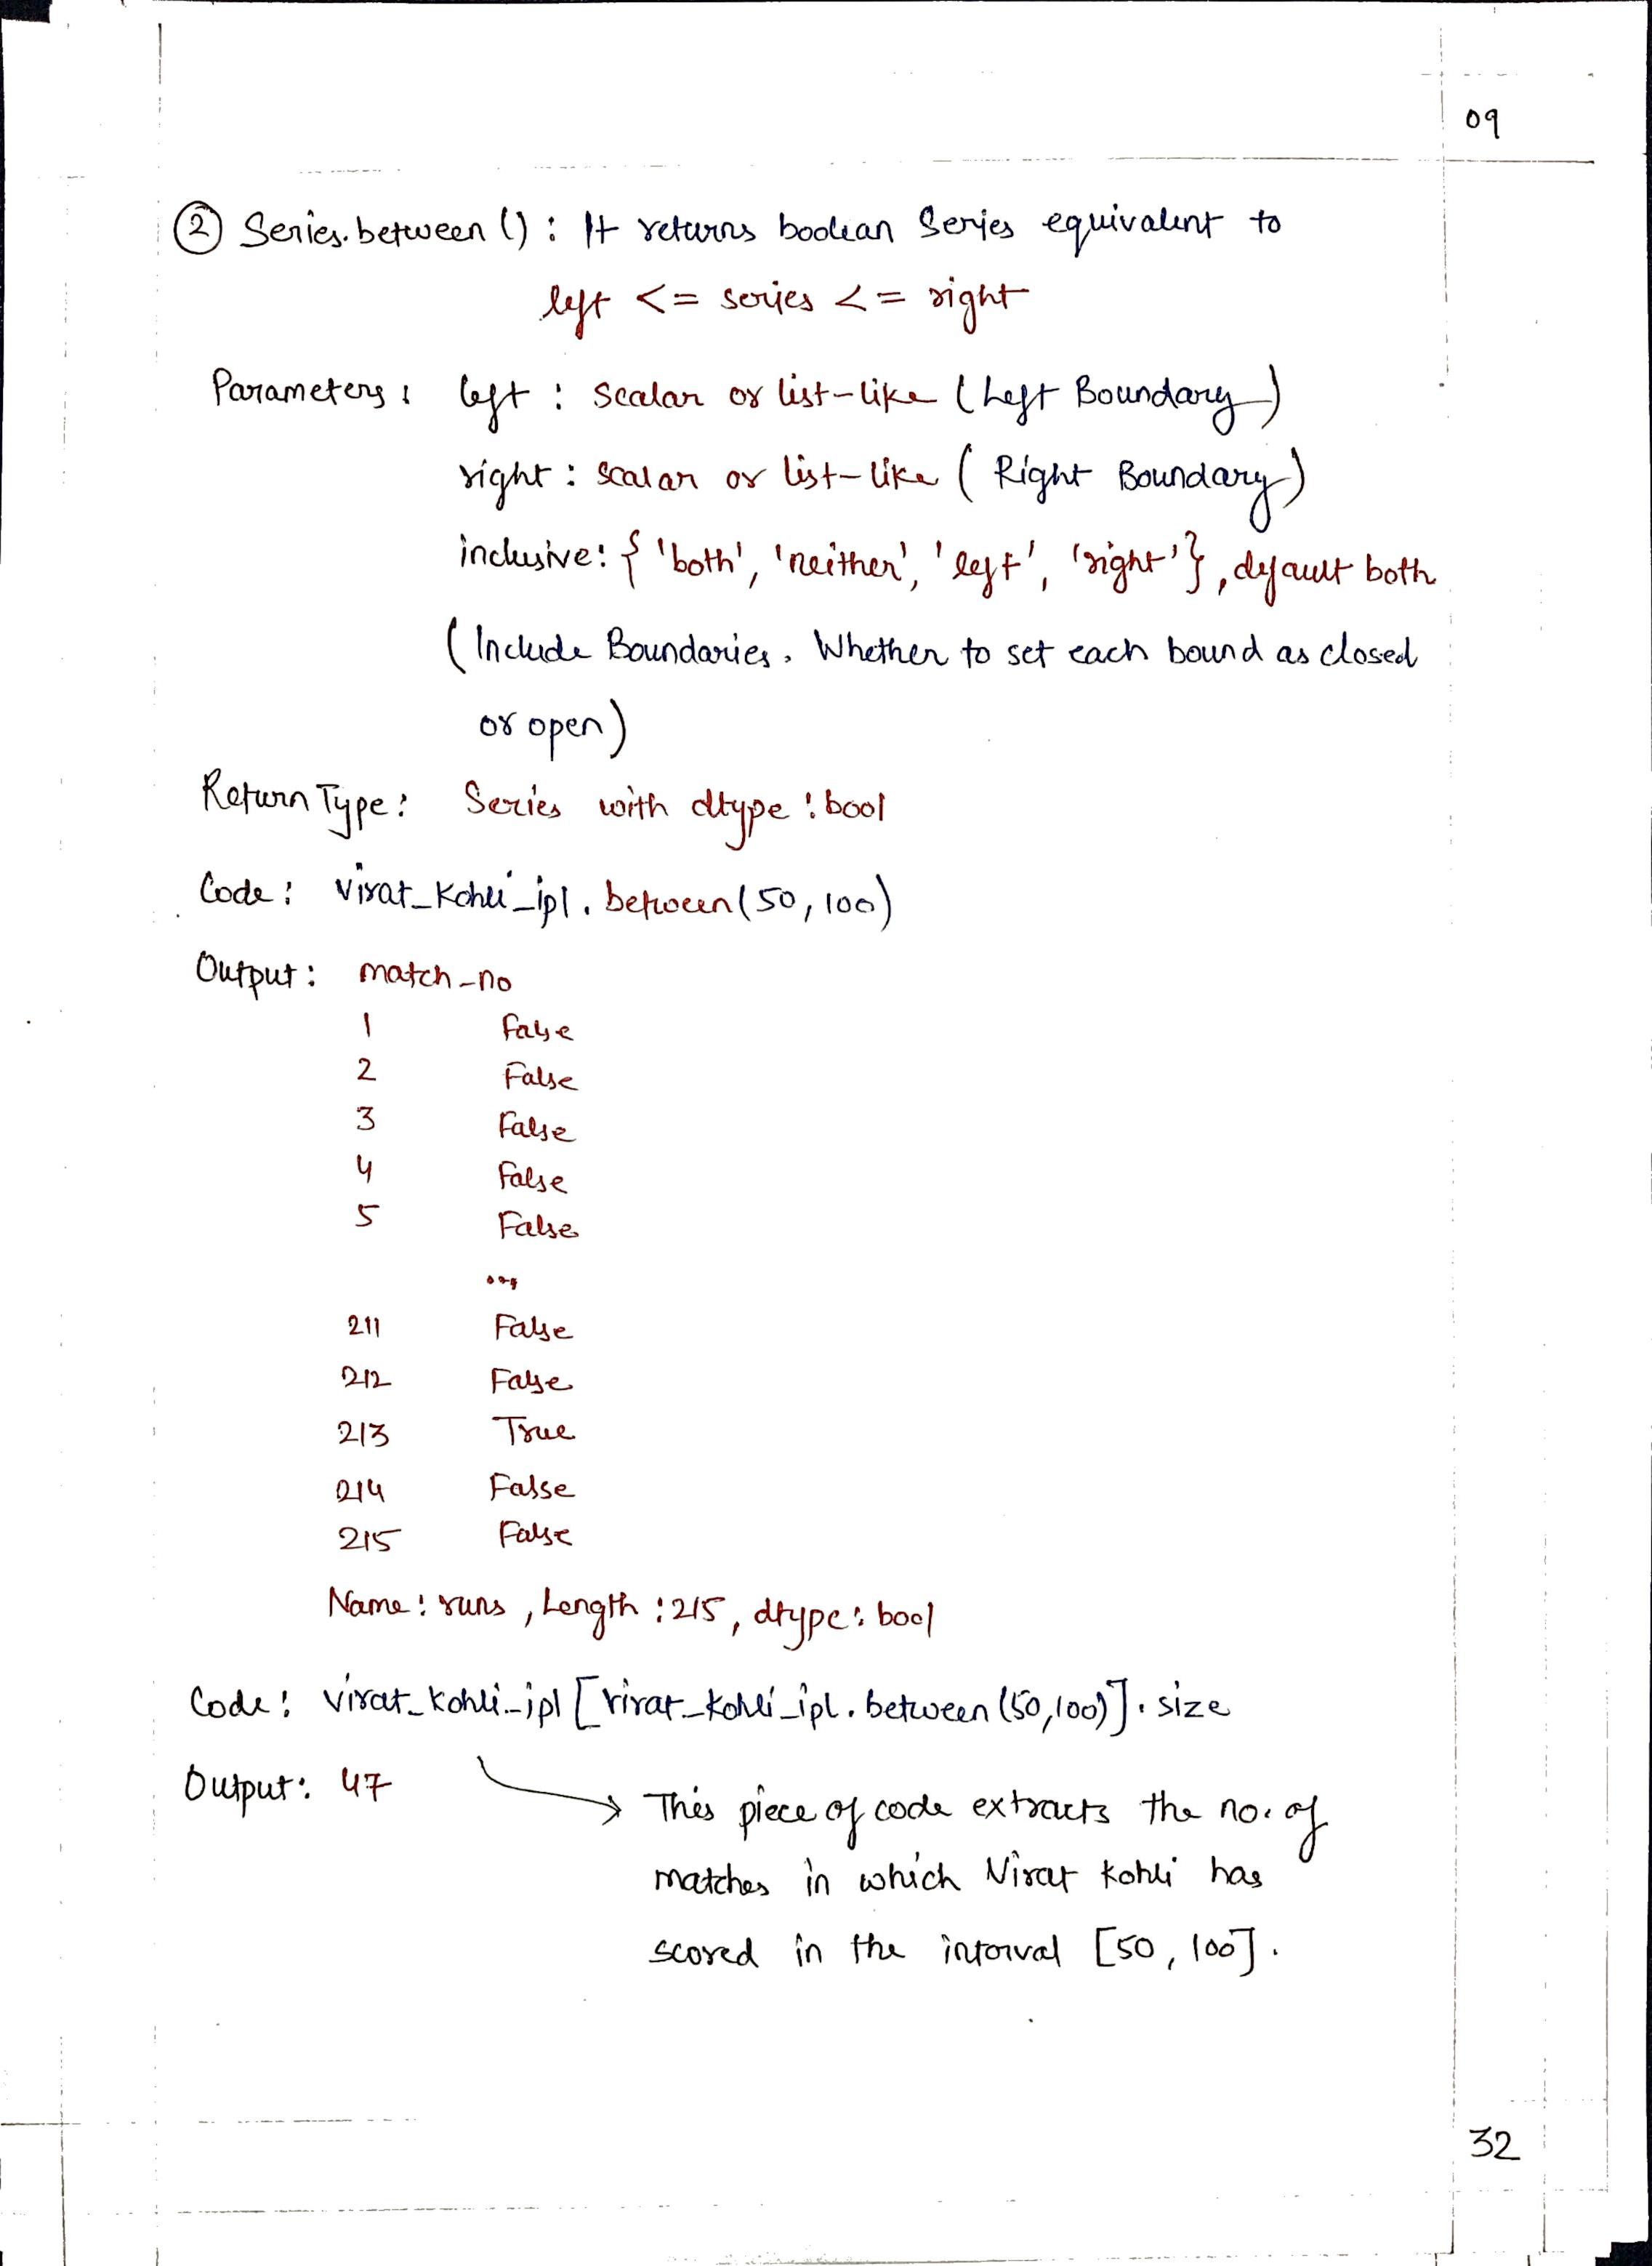 09
② Series.between () : It returns boolean Series equivalent to
left <= series <= right
Parameters : left : scalar or list-like (Left Boundary)
right : scalar or list-like ( Right Boundary)
inclusive : { 'both', 'neither', 'left', 'right'}, default both
( Include Boundaries. Whether to set each bound as closed
or open)
Return Type : Series with dtype : bool
Code : virat_kohli_ipl. between(50, 100)
Output : match-no
1 False
2 False
3 False
4 False
5 False
...
211 False
212 False
213 True
214 False
215 False
Name : runs , Length : 215, dtype : bool
Code : virat_kohli_ipl [virat_kohli_ipl. between (50,100)]. size
Output : 47
→ This piece of code extracts the no. of
matches in which Virat Kohli has
scored in the interval [50, 100].
32